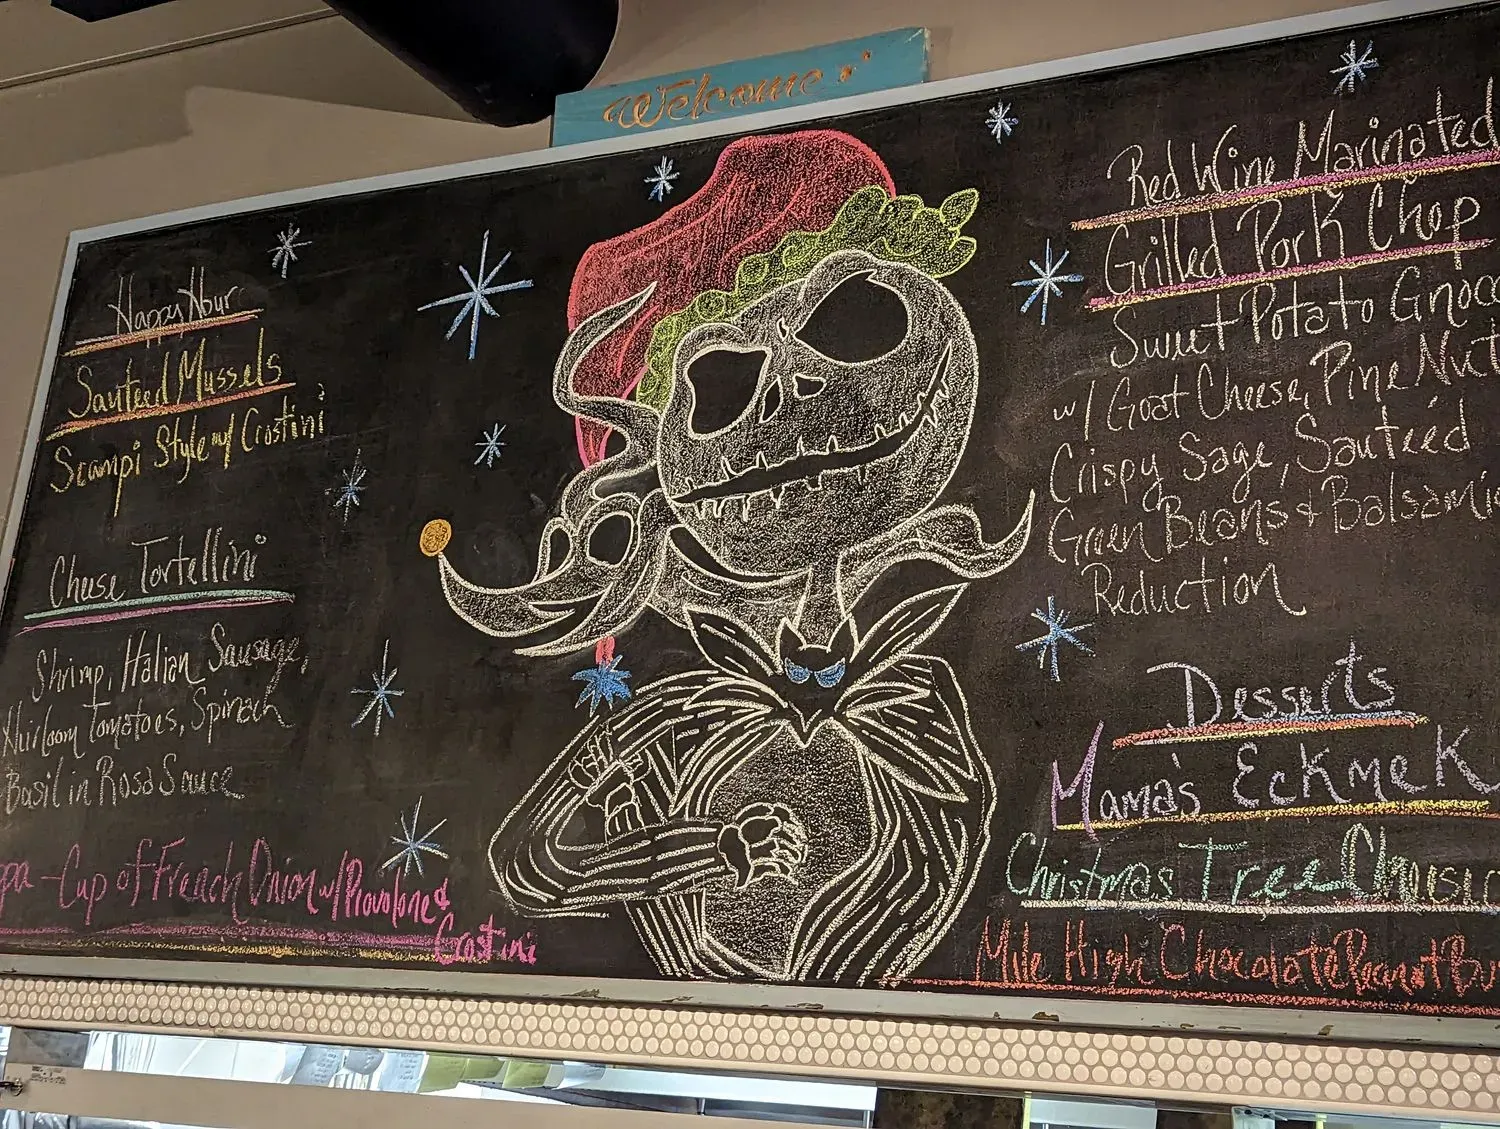 Welcome
Happy Hour
Sauteed Mussels
Scampi Style w/ Crostini
Cheese Tortellini
Shrimp, Italian Sausage,
Heirloom Tomatoes, Spinach
Basil in Rosa Sauce
-Cup of French Onion w/ Provolone &
Crostini
Red Wine Marinated
Grilled Pork Chop
Sweet Potato Gnocc
w/ Goat Cheese, Pine Nut
Crispy Sage, Sauteéd
Green Beans + Balsamic
Reduction
Desserts
Mama's Eckmek
Christmas Tree
Mile High Chocolate Peanut Bu